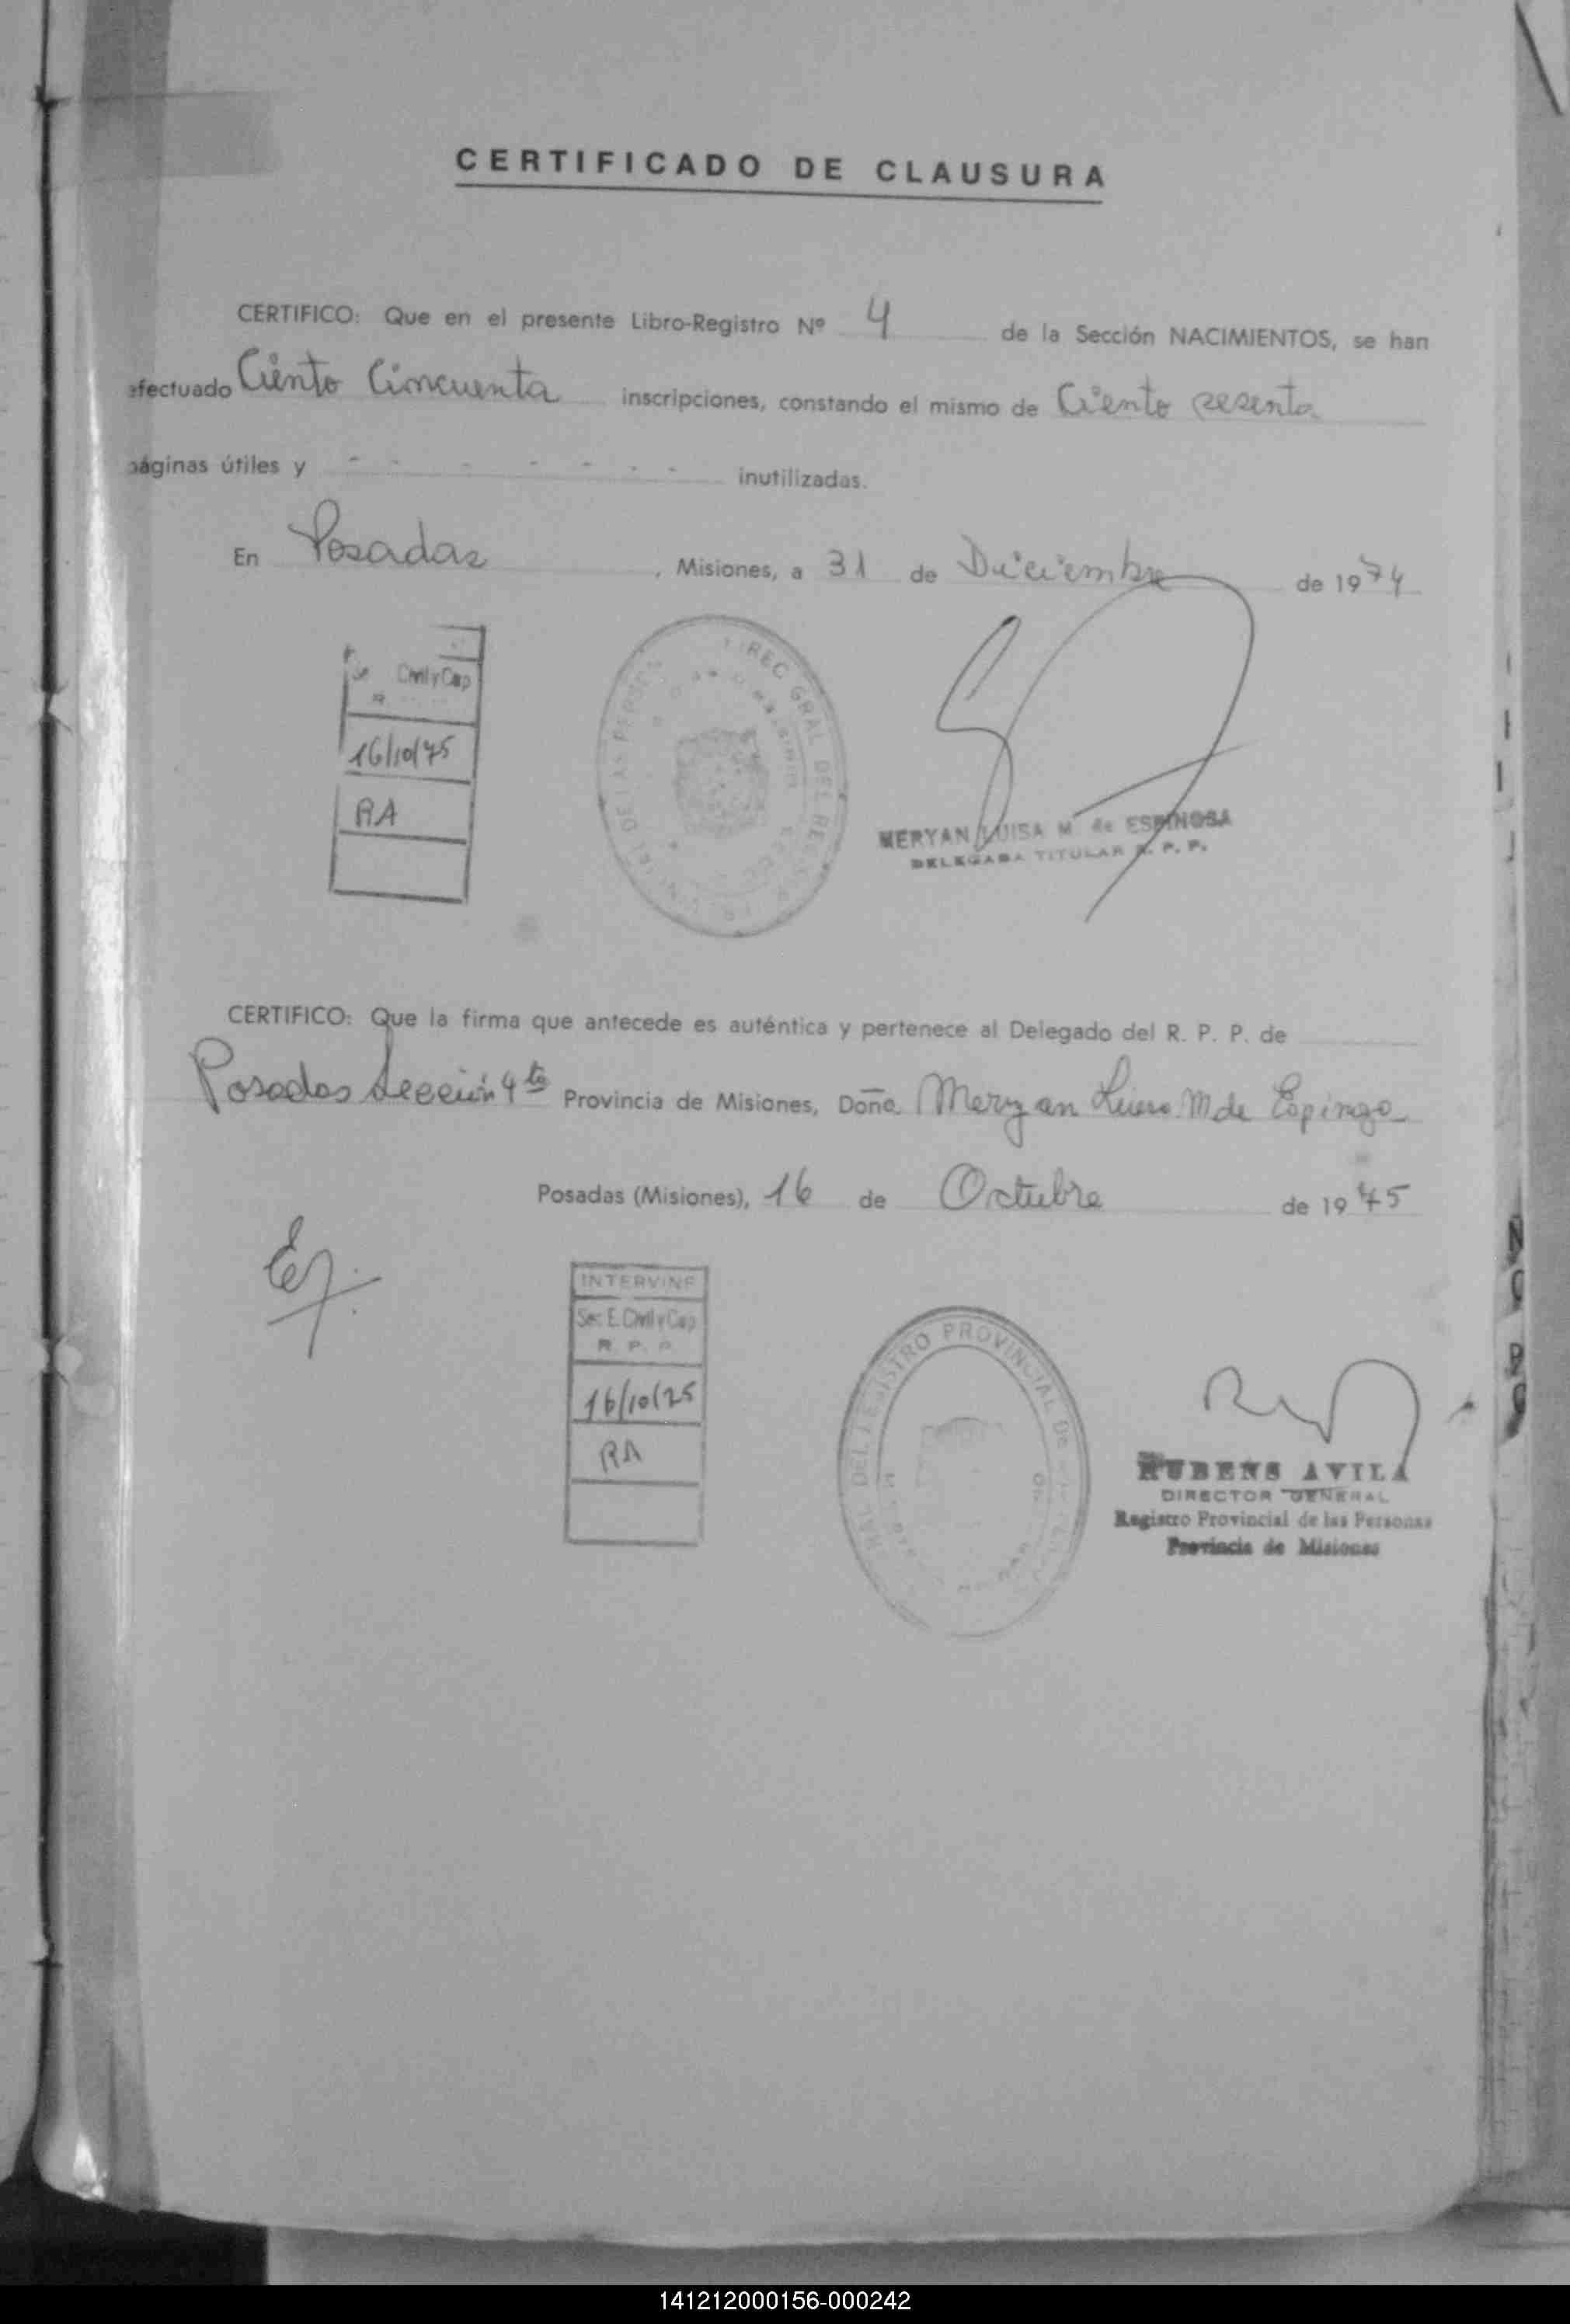 CERTIFICADO DE CLAUSURA
CERTIFICO: Que en el presente Libro-Registro Nº 4 de la Sección NACIMIENTOS, se han
efectuado Ciento Cincuenta inscripciones, constando el mismo de Ciento sesenta
páginas útiles y - - - - - - - inutilizadas.
En Posadas, Misiones, a 31 de Diciembre de 1974
Civil y Cap
16/10/75
RA
DIREC GRAL DEL REGISTRO
DE LAS PERSON
MERYAN LUISA M. de ESPINOSA
DELEGADA TITULAR R. P. P.
CERTIFICO: Que la firma que antecede es auténtica y pertenece al Delegado del R. P. P. de
Posadas Sección 4ta Provincia de Misiones, Doña Meryan Luisa M de Espinosa
Posadas (Misiones), 16 de Octubre de 1975
INTERVINE
Sec E. Civil y Cap
R. P. P.
16/10/75
RA
DEL REGISTRO PROVINCIAL DE
RUBENS AVILA
DIRECTOR GENERAL
Registro Provincial de las Personas
Provincia de Misiones
141212000156-000242